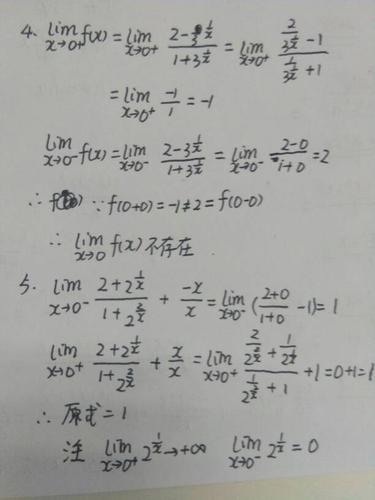 4. lim x→0+ f(x) = lim x→0+ (2-3^(1/x))/(1+3^(1/x)) = lim x→0+ (2/3^(1/x) -1)/(1/3^(1/x) +1)
= lim x→0+ -1/1 = -1
lim x→0- f(x) = lim x→0- (2-3^(1/x))/(1+3^(1/x)) = lim x→0- (2-0)/(1+0) = 2
∴ ∵ f(0+0) = -1 ≠ 2 = f(0-0)
∴ lim x→0 f(x) 不存在
5. lim x→0- (2+2^(1/x))/(1+2^(2/x)) + -x/x = lim x→0- ((2+0)/(1+0) -1) = 1
lim x→0+ (2+2^(1/x))/(1+2^(2/x)) + x/x = lim x→0+ (2/2^(2/x) + 1/2^(1/x))/(1/2^(2/x) +1) +1 = 0+1 = 1
∴ 原式 = 1
注 lim x→0+ 2^(1/x) → +∞ lim x→0- 2^(1/x) = 0